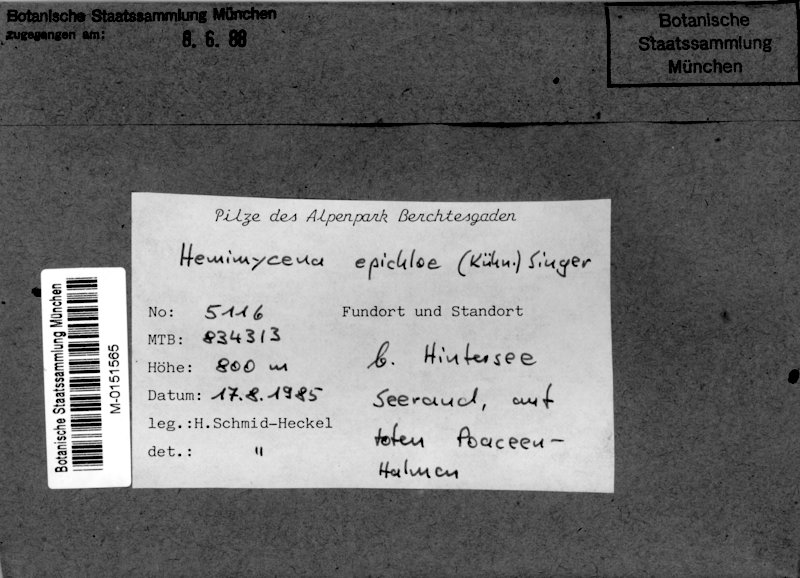 Botanische Staatssammlung München
zugegangen am: 8. 6. 88
Botanische
Staatssammlung
München
Pilze des Alpenpark Berchtesgaden
Hemimycena epichloe (Kühn.) Singer
No: 5116
MTB: 8343/3
Höhe: 800 m
Datum: 17.8.1985
leg.:H.Schmid-Heckel
det.: "
Fundort und Standort
b. Hintersee
Seerand, auf
toten Poaceen-
Halmen
Botanische Staatssammlung München
M-0151565